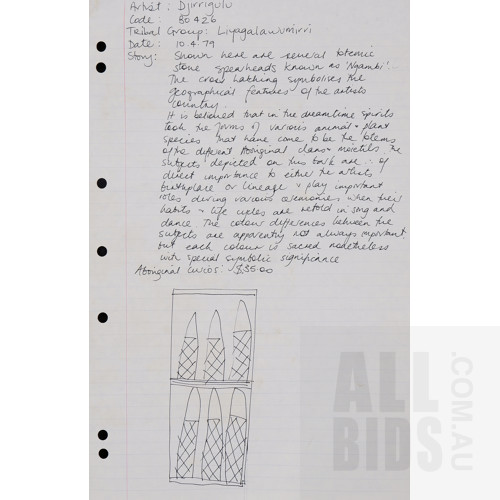 Artist: Djirrigulu
Code: 80426
Tribal Group: Liyagalawumirri
Date: 10.4.79
Story: Shown here are several totemic
stone spearheads known as 'Ngambi'.
The cross hatching symbolises the
geographical features of the artists
country.
It is believed that in the dreamtime spirits
took the forms of various animal & plant
species that have come to be the totems
of the different Aboriginal clans & moieties. The
subjects depicted on this bark are ∴ of
direct importance to either the artists
birthplace or lineage & play important
roles during various ceremonies, when their
habits & life cycles are retold in song and
dance. The colour differences between the
subjects are apparently not always important
but each colour is sacred nonetheless
with special symbolic significance
Aboriginal Curios: $35.00
ALL
BIDS
.COM.AU